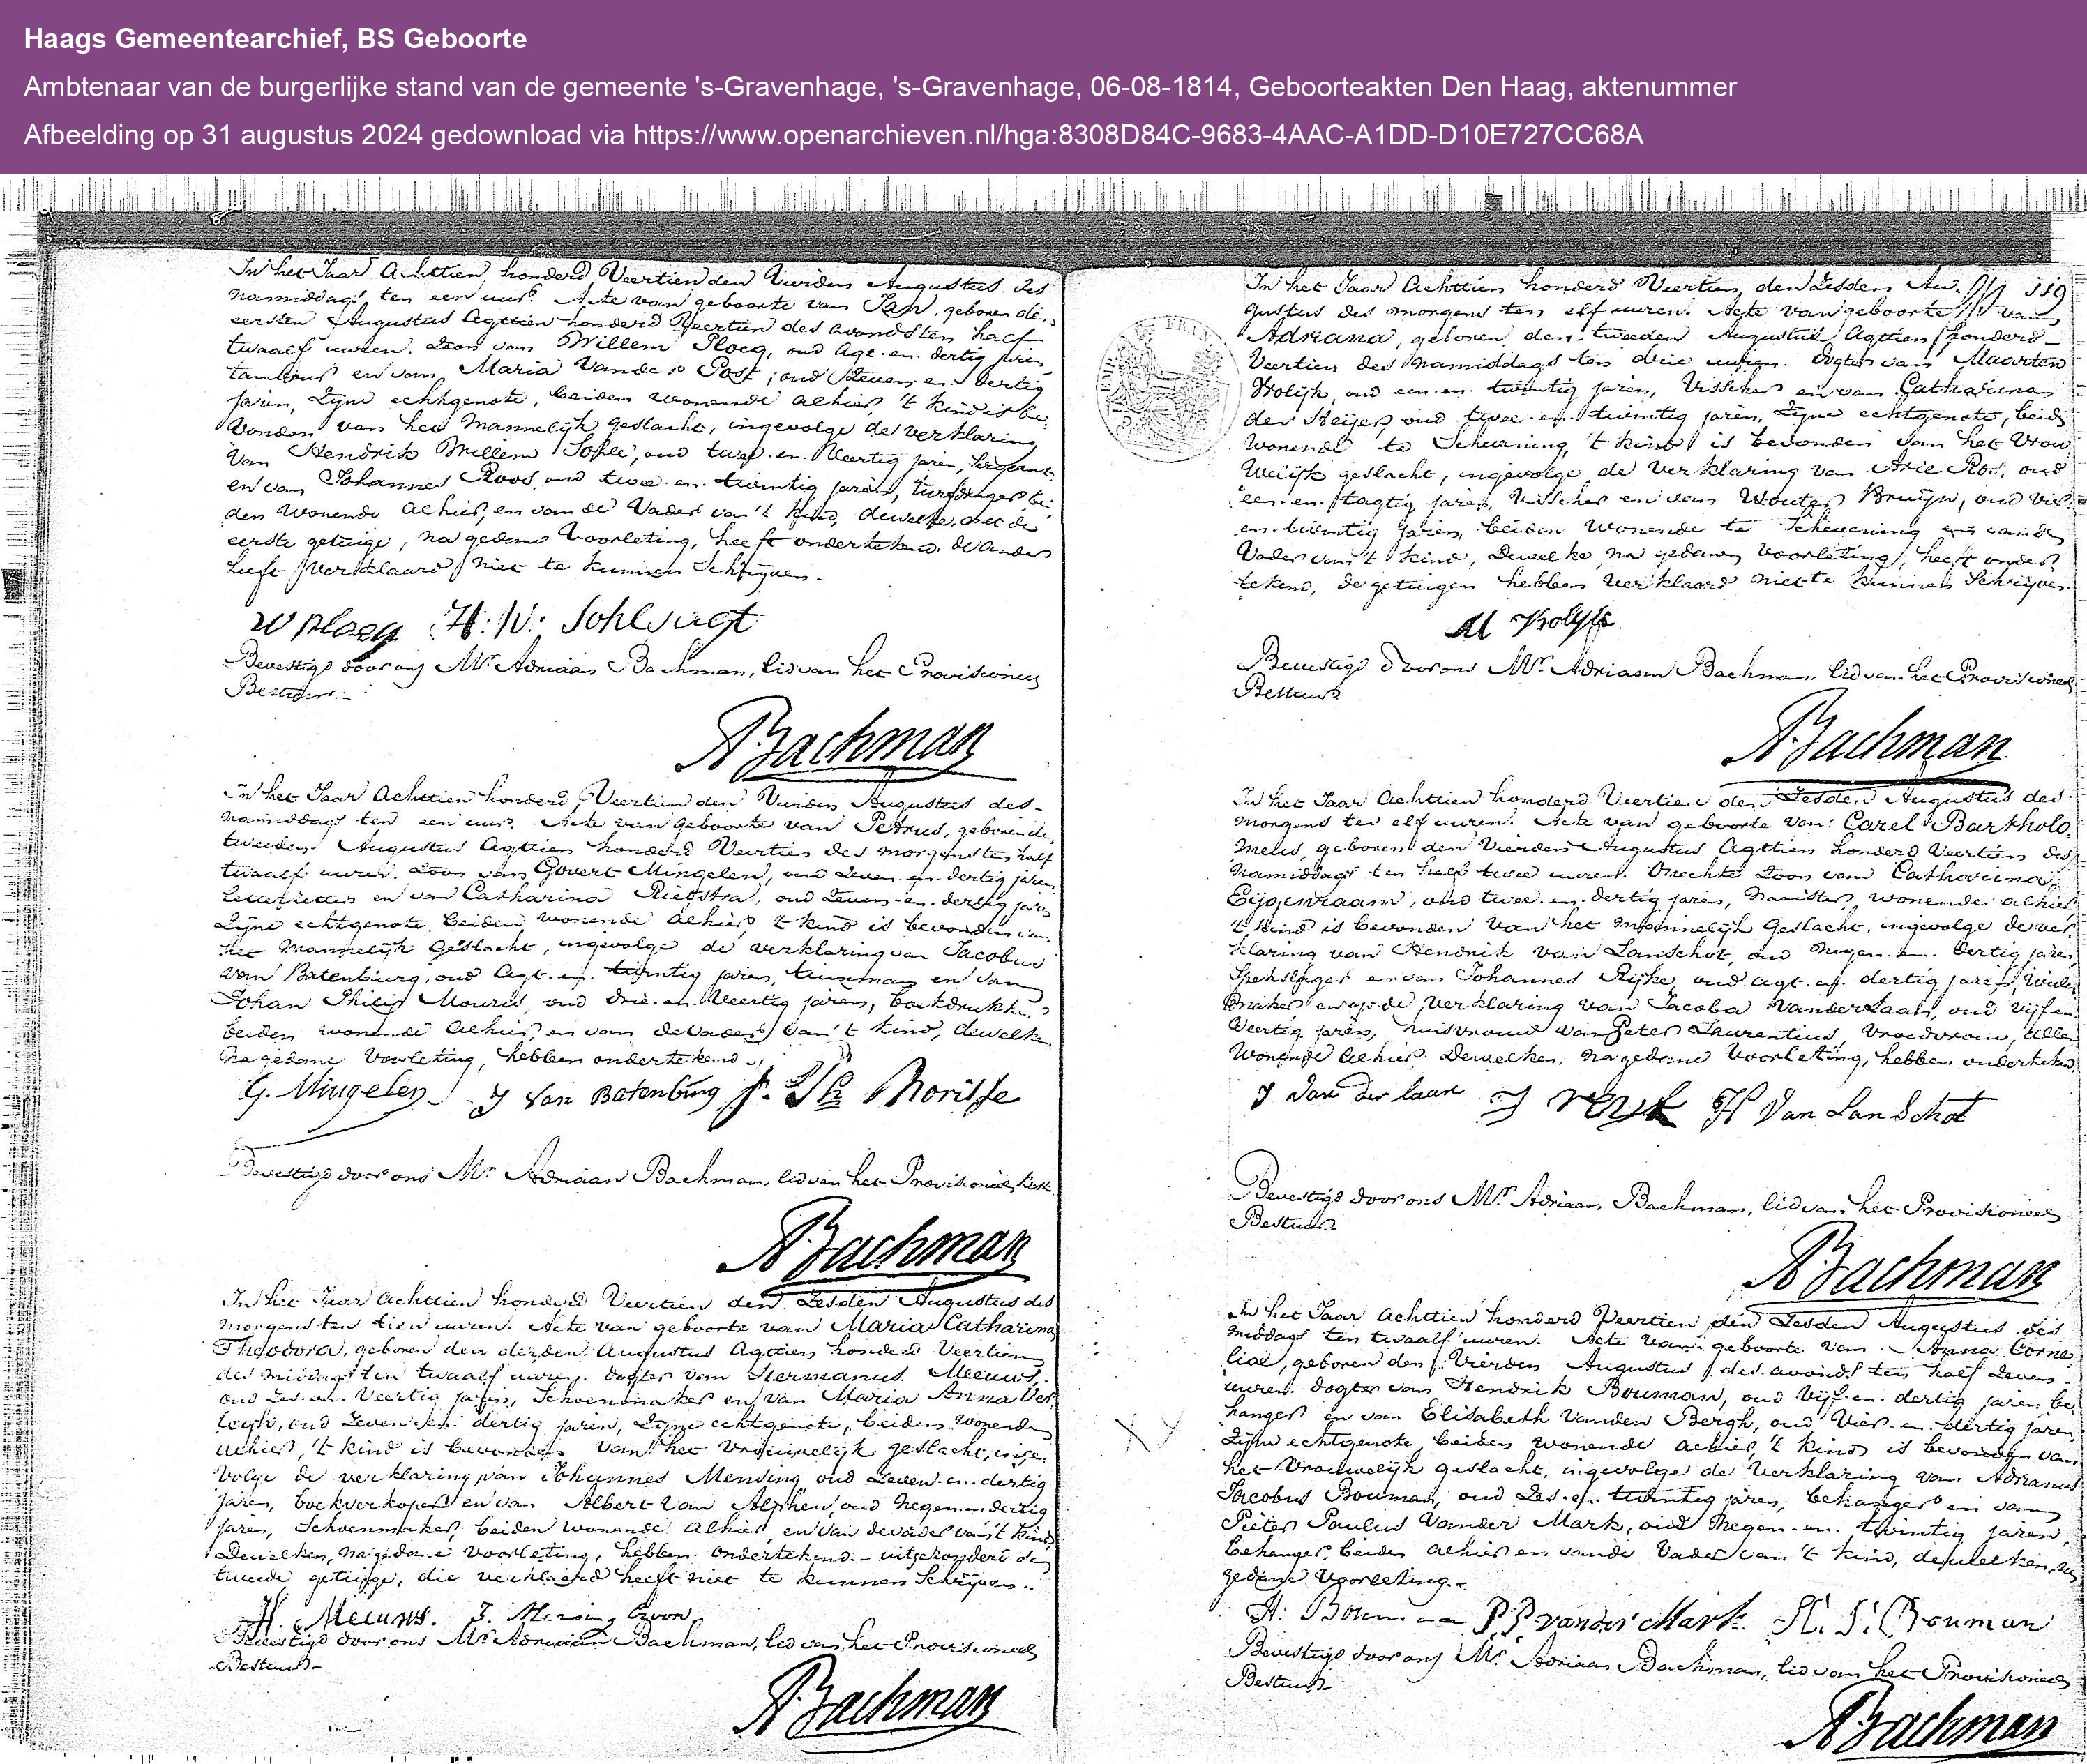 Haags Gemeentearchief, BS Geboorte
Ambtenaar van de burgerlijke stand van de gemeente 's-Gravenhage, 's-Gravenhage, 06-08-1814, Geboorteakten Den Haag, aktenummer
Afbeelding op 31 augustus 2024 gedownload via https://www.openarchieven.nl/hga:8308D84C-9683-4AAC-A1DD-D10E727CC68A
In het Jaar Achttien honderd Veertien den Vierden Augustus des
namiddags ten een uur. Acte van geboorte van Jan, geboren de
eersten Augustus Agttien honderd Veertien des avonds ten half
twaalf uuren. Zoon van Willem Ploeg, oud Agt en dertig jaren,
tambour en van Maria Vander Post, oud Zeven en dertig
jaren, Zijne echtgenote, beiden wonende alhier, 't kind is be
vonden van het Mannelijk geslacht, ingevolge de verklaring
van Hendrik Willem, oud twee en Veertig jaren, sergeant
en van Johannes Roos, oud twee en twintig jaren, turfdrager bei
den wonende alhier, en van de Vader van 't kind, dewelke met de
eerste getuige, na gedane Voorlezing, heeft ondertekend de andere
heeft verklaard niet te kunnen Schrijven.
W Ploeg H: W:
Bevestigd door ons Mr. Adriaan Bachman, lid van het Provisioneel
Bestuur.
ABachman
In het Jaar Achttien honderd Veertien den Vierden Augustus des
namiddags ten een uur. Acte van geboorte van Petrus, geboren de
tweeden Augustus Agttien honderd Veertien des morgens ten half
twaalf uuren. Zoon van Govert Mingelen, oud Zeven en dertig jaren,
en van Catharina Rietstra, oud Zeven en dertig jaren
Zijne echtgenote, beiden wonende alhier, 't kind is bevonden van
het Mannelijk Geslacht, ingevolge de verklaring van Jacobus
van Batenburg, oud Agt en twintig jaren, timmerman en van
Johan Philip Mouris, oud drie en Veertig jaren, boekdrukker
beiden wonende alhier, en van de Vader van 't kind, dewelke
na gedane Voorlezing, hebben ondertekend.
G. Mingelen J van Batenburg J. Ph Morisse
Bevestigd door ons Mr. Adriaan Bachman, lid van het Provisioneel Best.
ABachman
In het Jaar Achttien honderd Veertien den Zesden Augustus des
morgens ten tien uuren. Acte van geboorte van Maria Catharina
Theodora, geboren den derden Augustus Agttien honderd Veertien
des middags ten twaalf uuren. dogter van Hermanus Meeuws,
oud Zes en Veertig jaren, Schoenmaker en van Maria Anna Ver
leijs, oud Zeven en dertig jaren, Zijne echtgenote, beiden wonende
alhier, 't kind is bevonden van het Vrouwelijk geslacht, inge
volge de verklaring van Johannes Mensing oud Zeven en dertig
jaren, boekverkoper en van Albert van Alphen, oud negen en dertig
jaren, Schoenmaker, beiden wonende alhier, en van de vader van 't kind
Dewelken, na gedane voorlezing, hebben ondertekend - uitgezonderd de
tweede getuige, die verklaard heeft niet te kunnen Schrijven.
H. Meeuws. J. Mensing Zoon
Bevestigd door ons Mr. Adriaan Bachman, lid van het Provisioneel
Bestuur
ABachman
119
In het Jaar Achttien honderd Veertien, den Zesden Au
gustus des morgens ten elf uuren. Acte van geboorte van
Adriana, geboren den tweeden Augustus Agttien honderd
Veertien des Namiddags ten drie uuren. dogter van Maarten
Krolijk, oud een en twintig jaren, Visscher en van Catharina
der Heijer, oud twee en twintig jaren, Zijne echtgenote, beide
wonende te Schevening, 't kind is bevonden van het Vrou
welijk geslacht, ingevolge de verklaring van Arie Ros, oud
een en tagtig jaren, Visscher en van Wouter Bruijn, oud vier
en twintig jaren, beiden wonende te Schevening en van de
Vader van 't kind, dewelke, na gedane voorlezing, heeft onder
tekend, de getuigen hebben verklaard niet te kunnen Schrijven.
M Krolijk
Bevestigd door ons Mr. Adriaan Bachman, lid van het Provisioneel
Bestuur
ABachman
In het Jaar Achttien honderd Veertien den Zesden Augustus des
morgens ten elf uuren. Acte van geboorte van Carel Bartholo
meus, geboren den Vierden Augustus Agttien honderd Veertien des
Namiddags ten half twee uuren. Onechte Zoon van Catharina
Eijgenraam, oud twee en dertig jaren, Naaister, wonende alhier
't kind is bevonden van het mannelijk Geslacht, ingevolge de ver
klaring van Hendrik van Lanschot, oud negen en dertig jaren,
Spekslager en van Johannes Rijke, oud agt en dertig jaren, Wiele
maker en op de verklaring van Jacoba Vander Laan, oud vijf en
Veertig jaren, huisvrouw van Pieter Laurentius, Vroedvrouw, allen
Wonende alhier. Dewelken, na gedane Voorlezing, hebben ondertekend.
J van der laan H van Lanschot
Bevestigd door ons Mr. Adriaan Bachman, lid van het Provisioneel
Bestuur
ABachman
In het Jaar Achttien honderd Veertien den Zesden Augustus des
middags ten twaalf uuren. Acte van geboorte van Anna Corne
lia, geboren den Vierden Augustus des avonds ten half Zeven
uuren. dogter van Hendrik Bouman, oud Vijf en dertig jaren, be
hanger en van Elisabeth Vanden Bergh, oud Vier en dertig jaren,
Zijne echtgenote, beiden wonende alhier, 't kind is bevonden van
het Vrouwelijk geslacht, ingevolge de Verklaring van Adrianus
Jacobus Bouman, oud Zes en twintig jaren, behanger en van
Pieter Paulus Vander Mark, oud Negen en twintig jaren,
behanger, beiden alhier en van de Vader van 't kind, dewelken, na
gedane Voorlezing.
H: Bouman P. P. van der Mark A. J. Bouman
Bevestigd door ons Mr. Adriaan Bachman, lid van het Provisioneel
Bestuur
ABachman